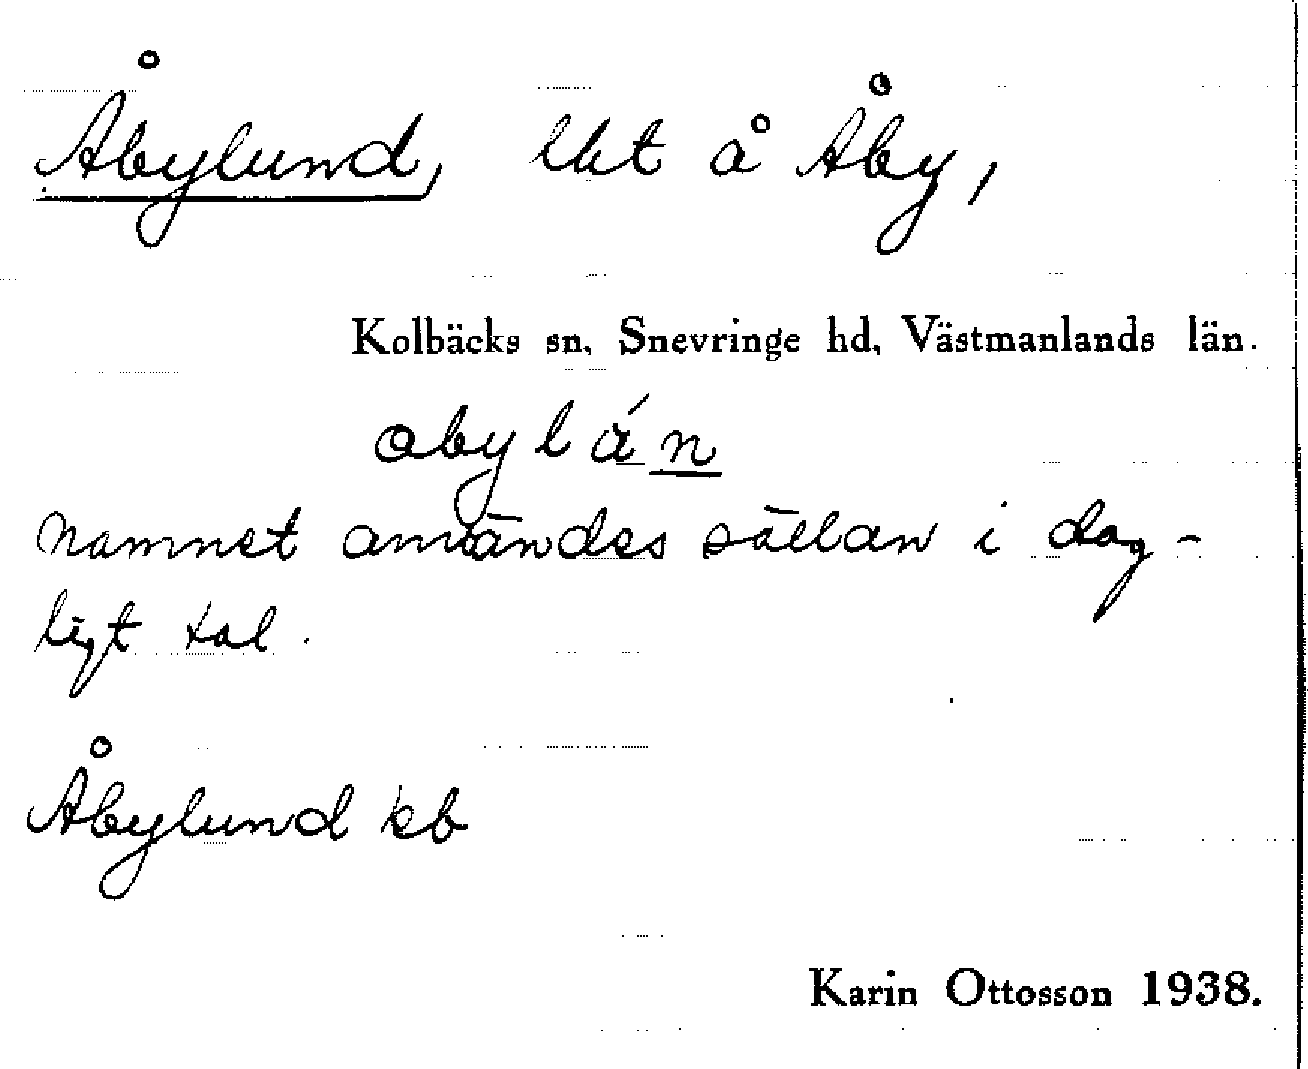 Åbylund, lht å Åby,
Kolbäcks sn, Snevringe hd, Västmanlands län.
abylán
Namnet användes sällan i dag-
ligt tal.
Åbylund kb
Karin Ottosson 1938.